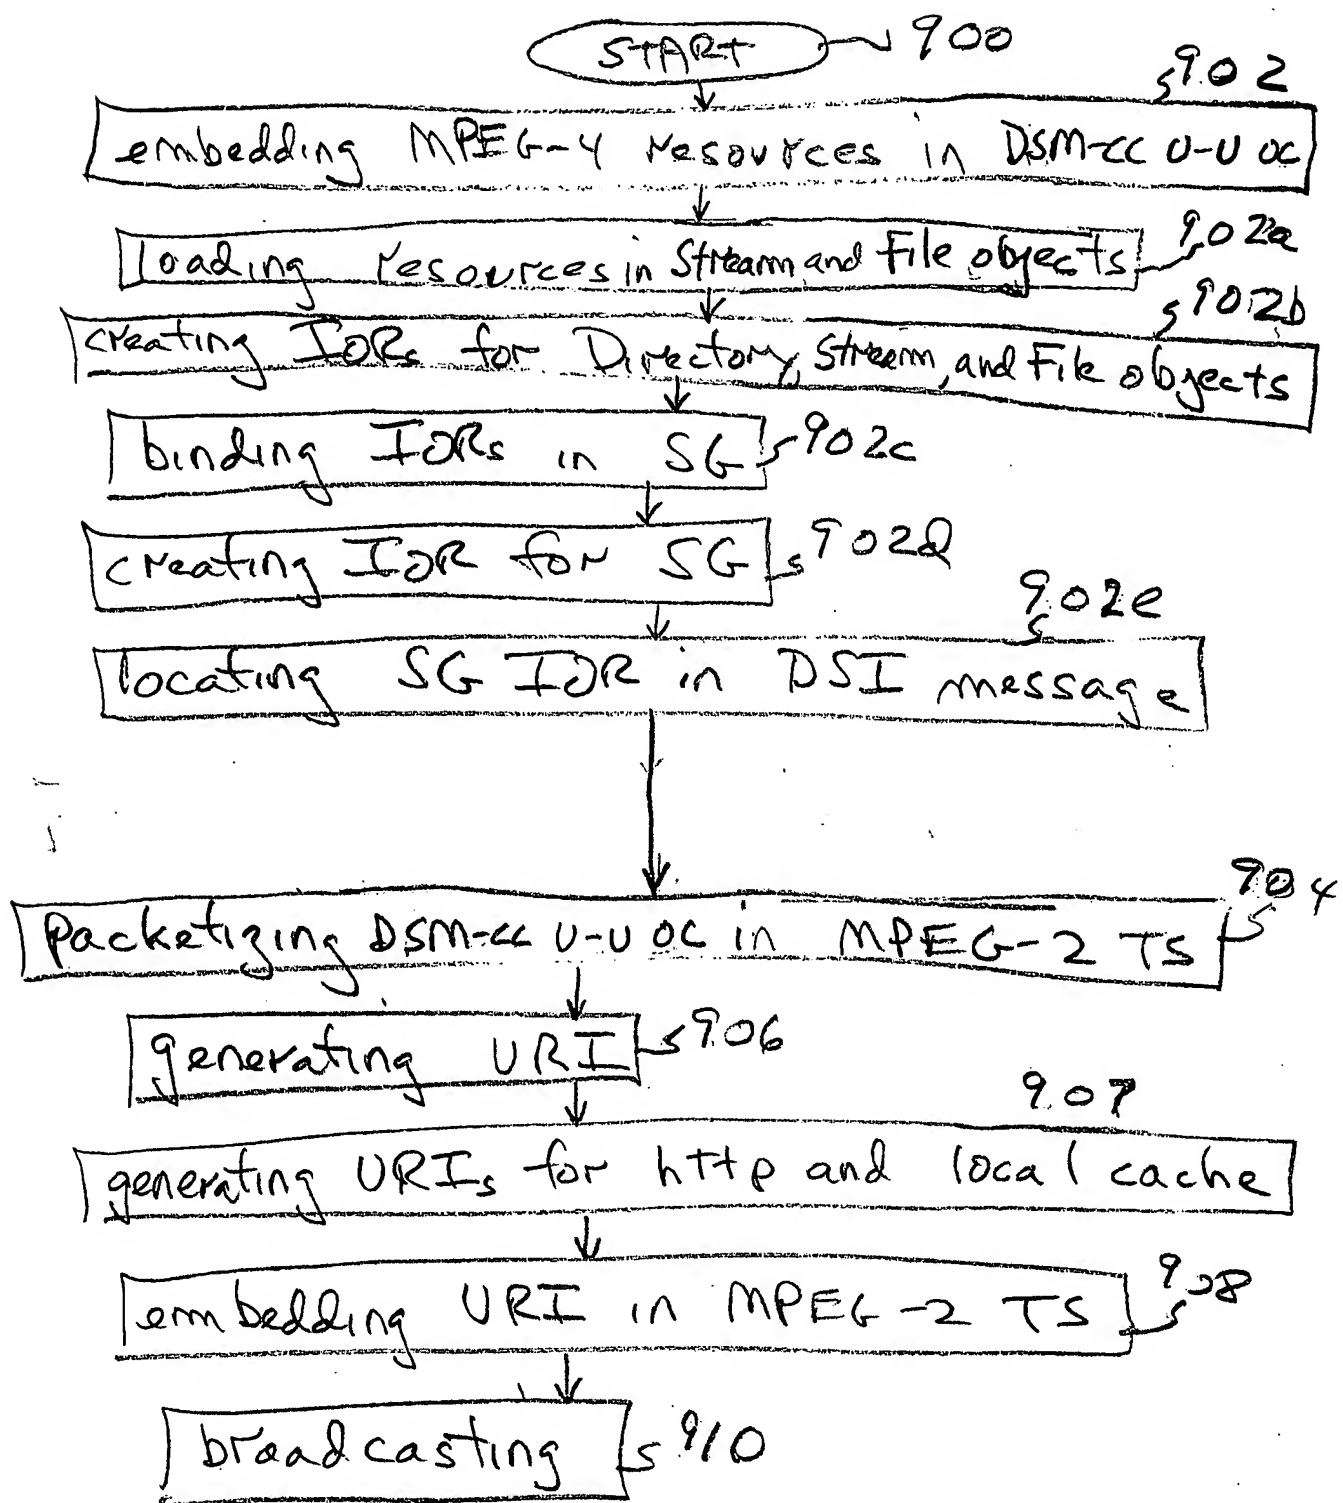 START 900
902
embedding MPEG-4 resources in DSM-CC U-U OC
loading resources in Stream and File objects 902a
902b
creating IORs for Directory, Stream, and File objects
binding IORs in SG 902c
creating IOR for SG 902d
902e
locating SG IOR in DSI message
904
packetizing DSM-CC U-U OC in MPEG-2 TS
generating URI 906
907
generating URIs for http and local cache
embedding URI in MPEG-2 TS 908
broadcasting 910